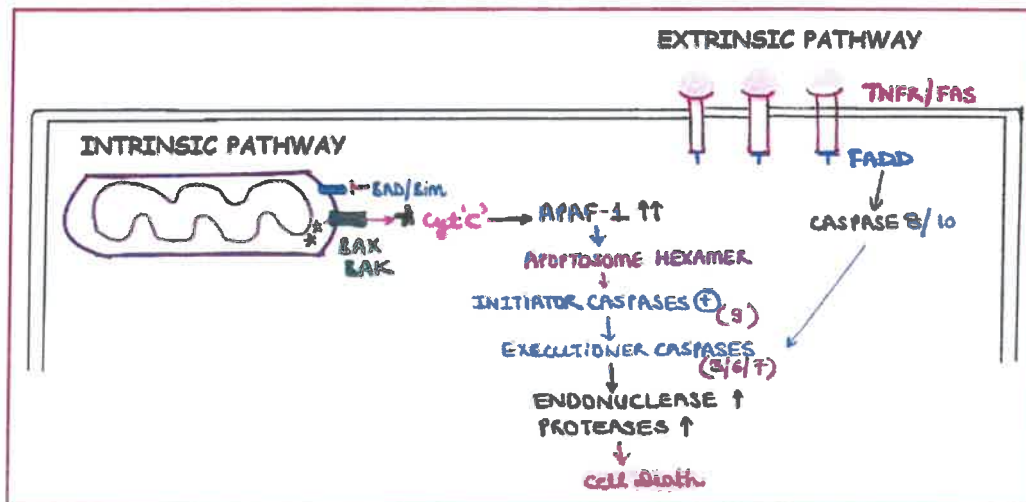 EXTRINSIC PATHWAY
TNFR/FAS
INTRINSIC PATHWAY
FADD
BAD/Bim
Cyt'c'
APAF-1 ↑↑
CASPASE 8/10
BAX
BAK
APOPTOSOME HEXAMER
INITIATOR CASPASES +
(9)
EXECUTIONER CASPASES
(3/6/7)
ENDONUCLEASE ↑
PROTEASES ↑
Cell Death